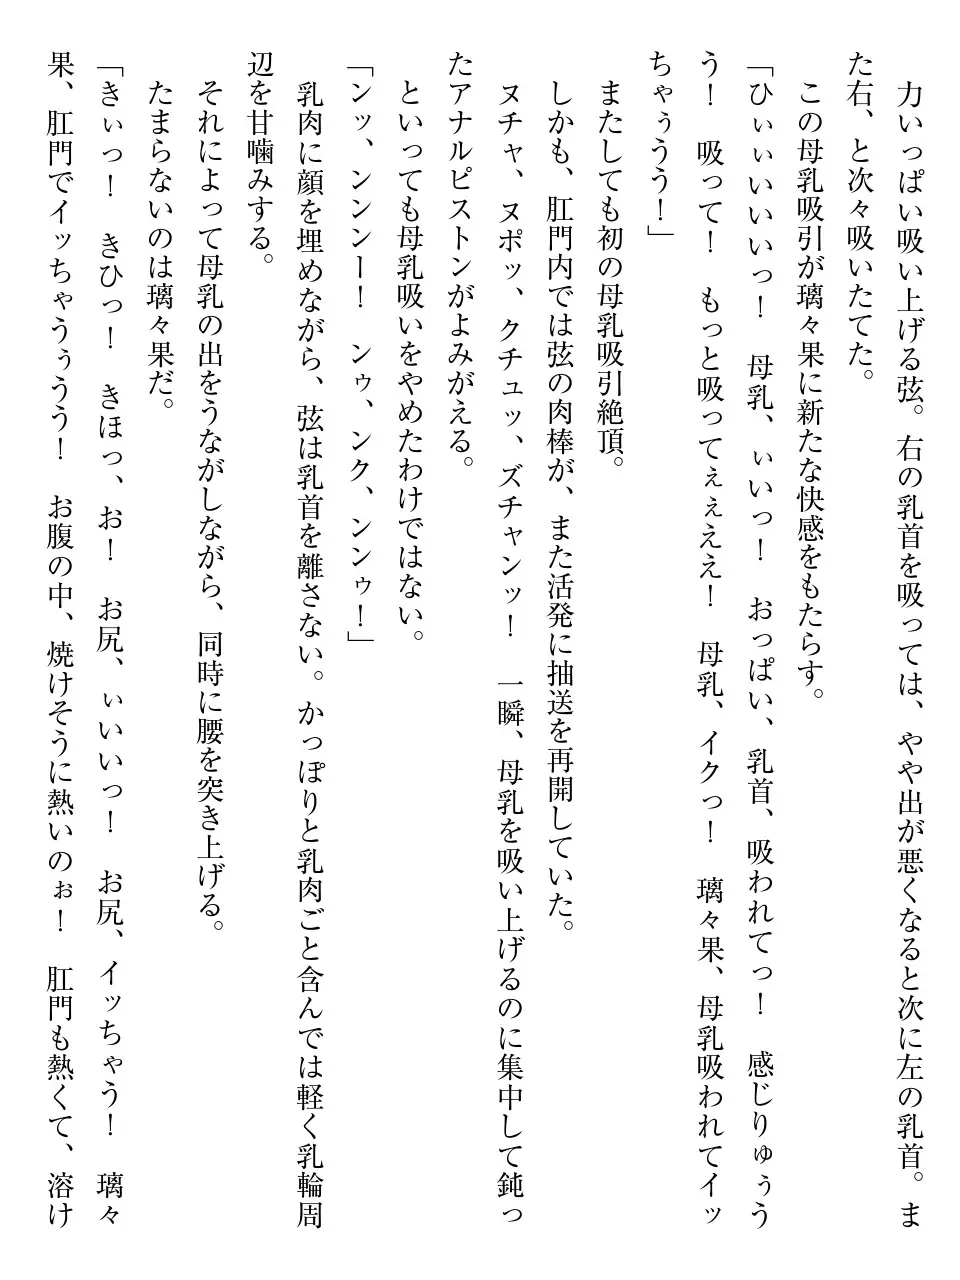 力いっぱい吸い上げる弦。右の乳首を吸っては、やや出が悪くなると次に左の乳首。ま
た右、と次々吸いたてた。
　この母乳吸引が璃々果に新たな快感をもたらす。
「ひぃぃいいいっ！　母乳、ぃいっ！　おっぱい、乳首、吸われてっ！　感じりゅぅう
う！　吸って！　もっと吸ってぇぇええ！　母乳、イクっ！　璃々果、母乳吸われてイッ
ちゃぅうう！」
　またしても初の母乳吸引絶頂。
　しかも、肛門内では弦の肉棒が、また活発に抽送を再開していた。
　ヌチャ、ヌポッ、クチュッ、ズチャンッ！　一瞬、母乳を吸い上げるのに集中して鈍っ
たアナルピストンがよみがえる。
　といっても母乳吸いをやめたわけではない。
「ンッ、ンンンー！　ンゥ、ンク、ンンゥ！」
　乳肉に顔を埋めながら、弦は乳首を離さない。かっぽりと乳肉ごと含んでは軽く乳輪周
辺を甘噛みする。
　それによって母乳の出をうながしながら、同時に腰を突き上げる。
　たまらないのは璃々果だ。
「きぃっ！　きひっ！　きほっ、お！　お尻、ぃいいっ！　お尻、イッちゃう！　璃々
果、肛門でイッちゃうぅうう！　お腹の中、焼けそうに熱いのぉ！　肛門も熱くて、溶け